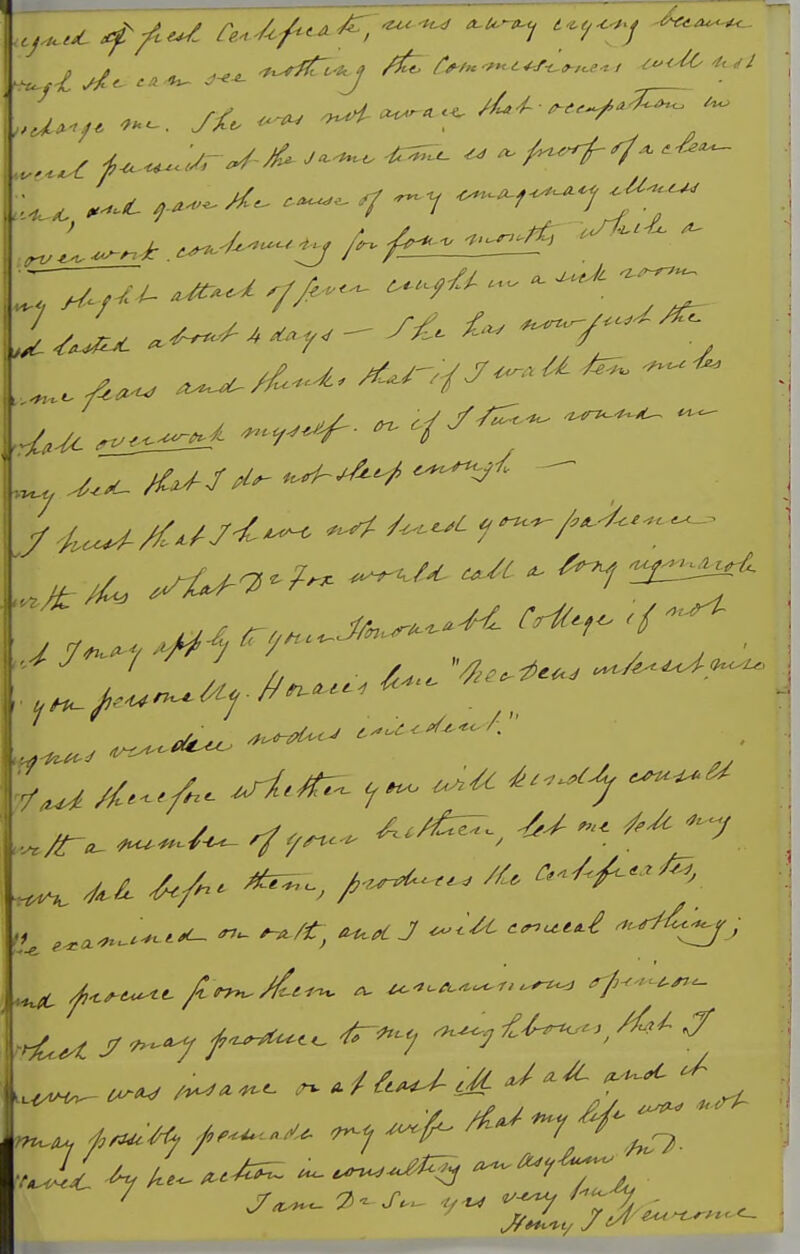 signed of first Certificate, runs away crying because
she can see nothing the Commissioners will not
me. She was not aware that occupation in
several pursuits at the same time is a proof of a clear
mind, and gave the cause of my imaginary illness
overwork continuing for four months, while a
my slight attack of fever caught in a sick room
lasted about 4 days — She has now just the
same fears and thinks that if I walk ten miles
I shall overwork myself. or if I turn round in
my bed that I do not sleep enough —
I trust that I have not tired your patience
with this what Dr Fox would call a long rigmarole
I may apply to your Honourable College if not
you personally. Horace's line "nec Deus intersit nisi
dignus vindice nodus inciderit."
I ask therefore whether you will kindly consult
with a number of your brethren, let me tell my
own tale before them, produces the Certificates,
be examined on oath, and I will conceal nothing;
and procure from them a unanimous opinion
that I may produce to my neighbours, that I
never was insane or at least ill at all and it
may possibly persuade my wife that my life was not
saved by her action in consulting an Asylum Dr.
I am Dr Sir yrs very truly
Henry J Newcome